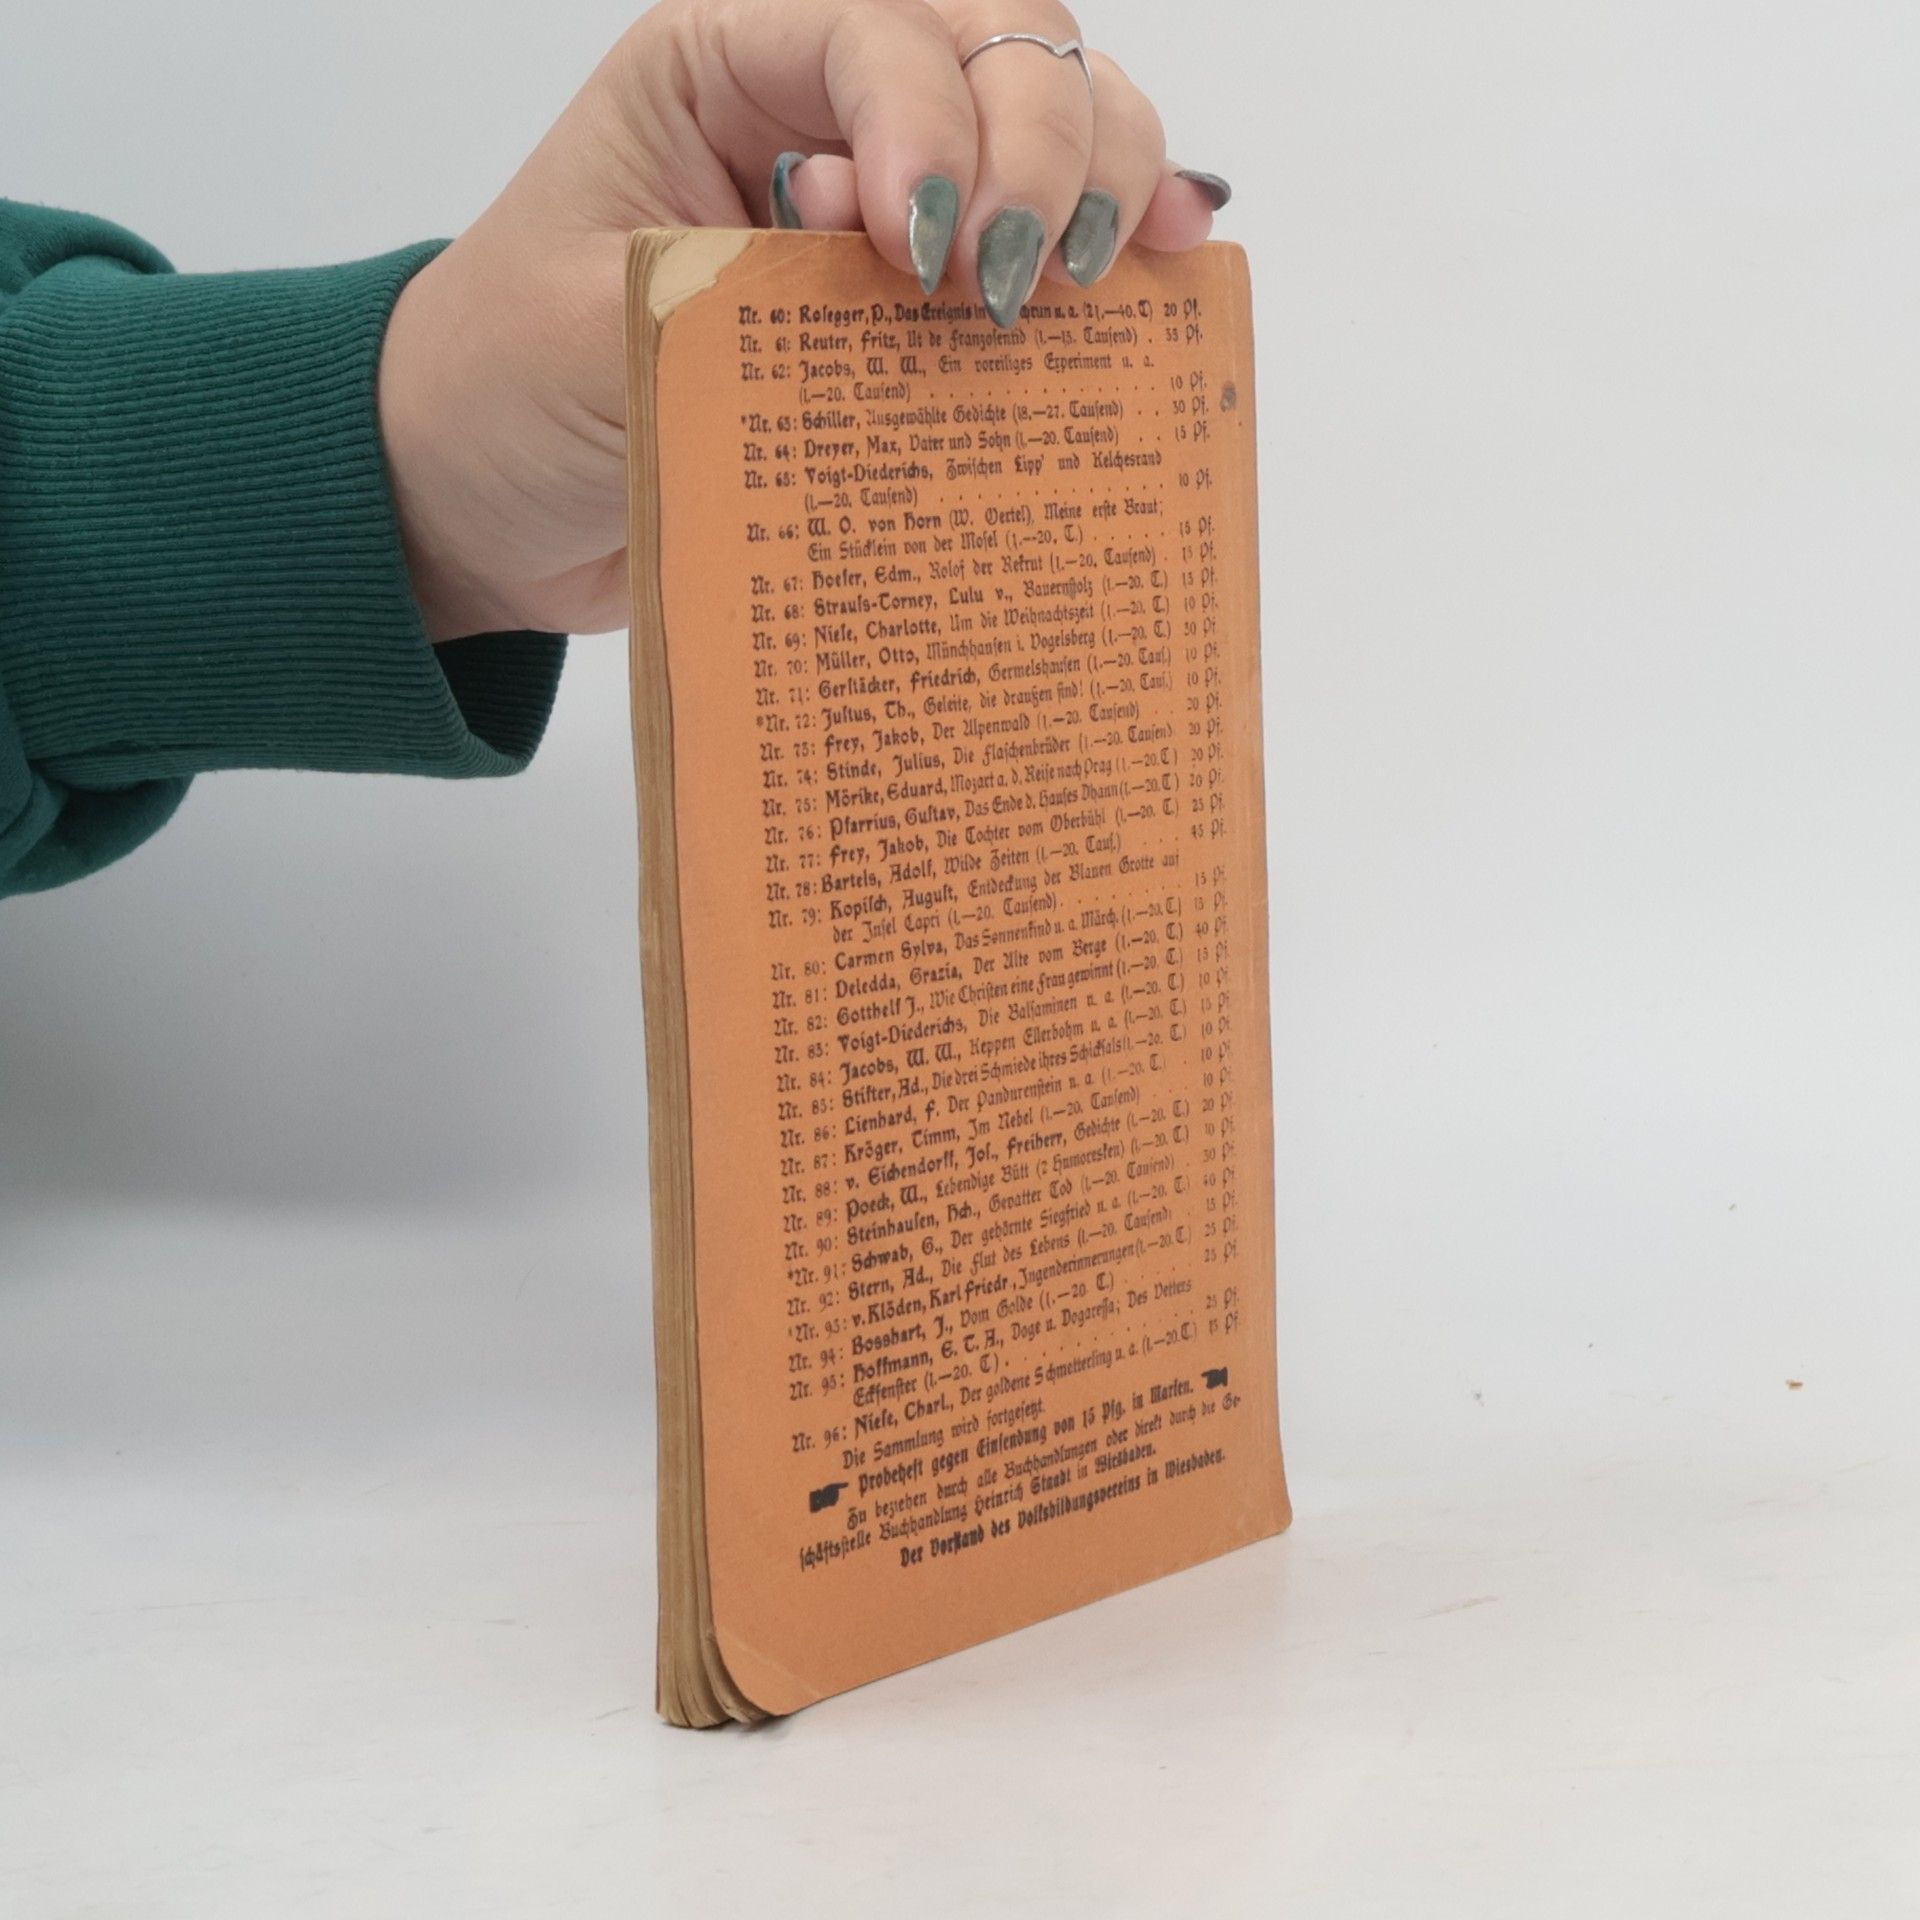 Nr. 60: Rosegger, P., Das Ereignis in u. a. (21.—40. T) 20 Pf.
Nr. 61: Reuter, Fritz, Ut de Franzosentid (1.—15. Tausend) . 35 Pf.
Nr. 62: Jacobs, W. W., Ein voreiliges Experiment u. a.
(1.—20. Tausend) . . . . . . . . . . . 10 Pf.
*Nr. 63: Schiller, Ausgewählte Gedichte (18.—27. Tausend) . . 30 Pf.
Nr. 64: Dreyer, Max, Vater und Sohn (1.—20. Tausend) . . 15 Pf.
Nr. 65: Voigt-Diederichs, Zwischen Lipp' und Kelchesrand
(1.—20. Tausend) . . . . . . . . . . . 10 Pf.
Nr. 66: W. O. von Horn (W. Oertel), Meine erste Braut;
Ein Stücklein von der Mosel (1.—20. T.) . . . . . 15 Pf.
Nr. 67: Hoefer, Edm., Rolof der Rekrut (1.—20. Tausend) . 15 Pf.
Nr. 68: Strauß-Torney, Lulu v., Bauernstolz (1.—20. T.) 15 Pf.
Nr. 69: Niese, Charlotte, Um die Weihnachtszeit (1.—20. T.) 10 Pf.
Nr. 70: Müller, Otto, Münchhausen i. Vogelsberg (1.—20. T.) 30 Pf.
Nr. 71: Gerstäcker, Friedrich, Germelshausen (1.—20. Taus.) 10 Pf.
*Nr. 72: Justus, Th., Geleite, die draußen sind! (1.—20. Taus.) 10 Pf.
Nr. 73: Frey, Jakob, Der Alpenwald (1.—20. Tausend) . . 20 Pf.
Nr. 74: Stinde, Julius, Die Flaschenbrüder (1.—20. Tausend) 20 Pf.
Nr. 75: Mörike, Eduard, Mozart a. d. Reise nach Prag (1.—20. T) 20 Pf.
Nr. 76: Pfarrius, Gustav, Das Ende d. Hauses Dhann (1.—20. T.) 20 Pf.
Nr. 77: Frey, Jakob, Die Tochter vom Oberbühl (1.—20. T.) 25 Pf.
Nr. 78: Bartels, Adolf, Wilde Zeiten (1.—20. Taus.) . . 45 Pf.
Nr. 79: Kopisch, August, Entdeckung der Blauen Grotte auf
der Insel Capri (1.—20. Tausend) . . . . . . . . 15 Pf.
Nr. 80: Carmen Sylva, Das Sonnenkind u. a. Märch. (1.—20. T.) 15 Pf.
Nr. 81: Deledda, Grazia, Der Alte vom Berge (1.—20. T.) 40 Pf.
Nr. 82: Gotthelf J., Wie Christen eine Frau gewinnt (1.—20. T.) 15 Pf.
Nr. 83: Voigt-Diederichs, Die Balsaminen u. a. (1.—20. T.) 10 Pf.
Nr. 84: Jacobs, W. W., Keppen Ellerbohm u. a. (1.—20. T.) 15 Pf.
Nr. 85: Stifter, Ad., Die drei Schmiede ihres Schicksals (1.—20. T.) 10 Pf.
Nr. 86: Lienhard, F. Der Pandurenstein u. a. (1.—20. T.) . 10 Pf.
Nr. 87: Kröger, Timm, Im Nebel (1.—20. Tausend) . . 10 Pf.
Nr. 88: v. Eichendorff, Jos., Freiherr, Gedichte (1.—20. T.) 20 Pf.
Nr. 89: Poeck, W., Lebendige Bütt (2 Humoresken) (1.—20. T.) 10 Pf.
Nr. 90: Steinhausen, Hch., Gevatter Tod (1.—20. Tausend) . 30 Pf.
*Nr. 91: Schwab, G., Der gehörnte Siegfried u. a. (1.—20. T.) 40 Pf.
Nr. 92: Stern, Ad., Die Flut des Lebens (1.—20. Tausend) . 15 Pf.
*Nr. 93: v. Klöden, Karl Friedr., Jugenderinnerungen (1.—20. T.) 25 Pf.
Nr. 94: Bosshart, J., Vom Golde (1.—20. T.) . . . . . . 25 Pf.
Nr. 95: Hoffmann, E. T. A., Doge u. Dogaressa; Des Vetters
Eckfenster (1.—20. T.) . . . . . . . . . . . 25 Pf.
Nr. 96: Niese, Charl., Der goldene Schmetterling u. a. (1.—20. T.) 15 Pf.
Die Sammlung wird fortgesetzt.
Probeheft gegen Einsendung von 15 Pfg. in Marken.
Zu beziehen durch alle Buchhandlungen oder direkt durch die Ge-
schäftsstelle Buchhandlung Heinrich Staadt in Wiesbaden.
Der Vorstand des Volksbildungsvereins in Wiesbaden.